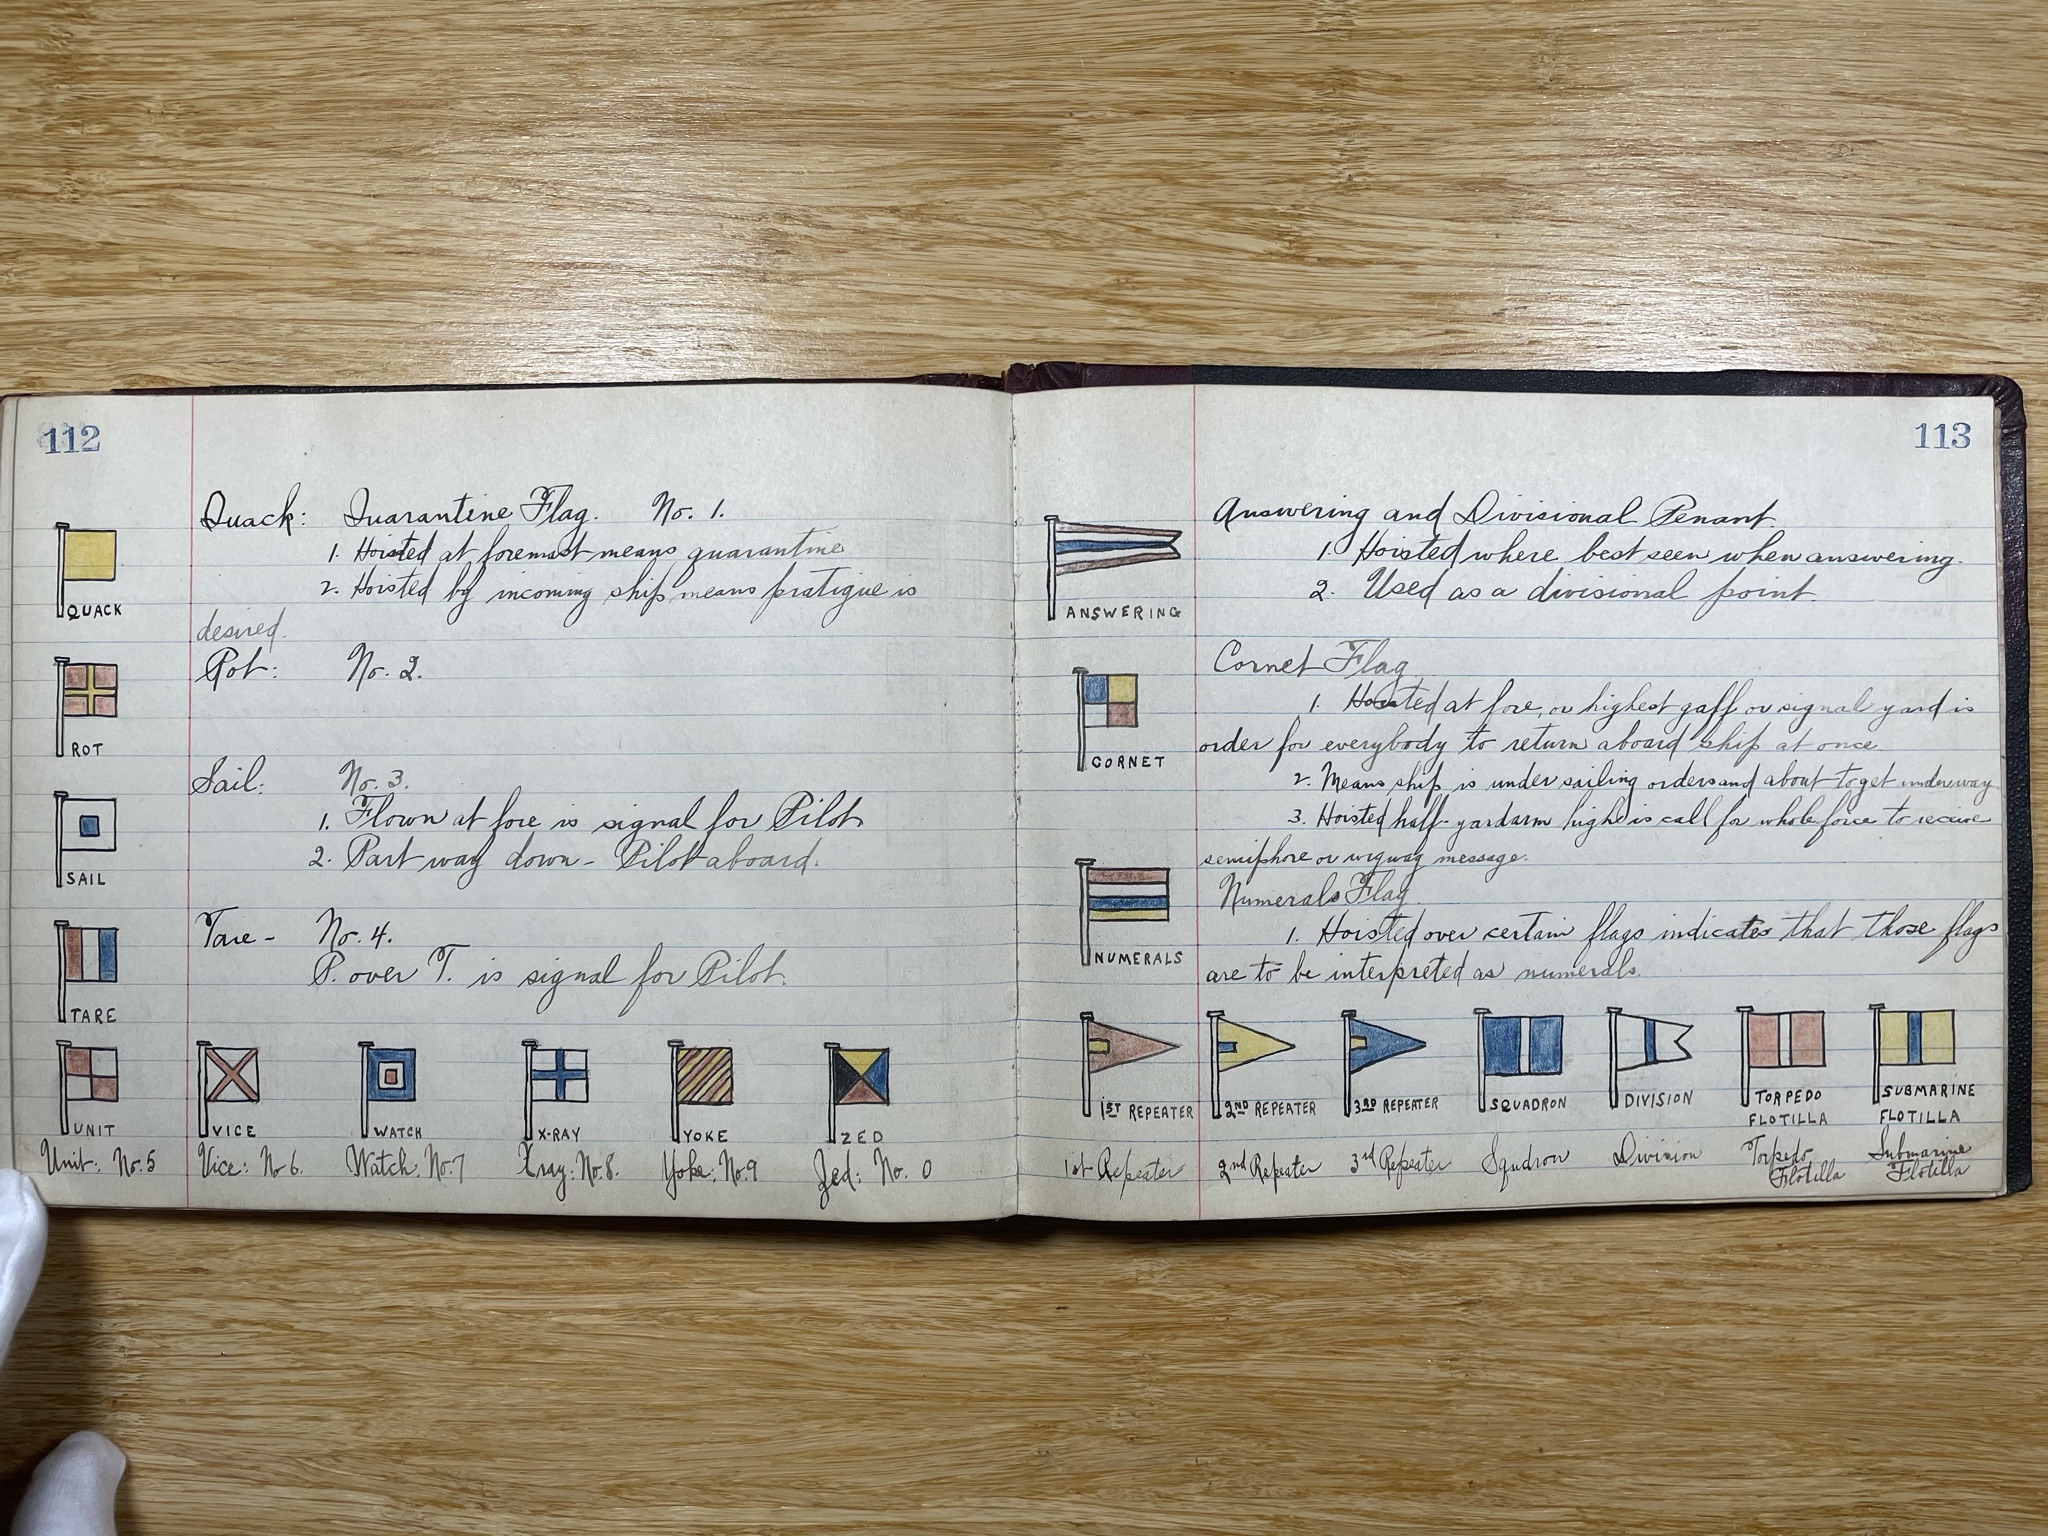 112
Quack: Quarantine Flag. No. 1.
1. Hoisted at foremast means quarantine
2. Hoisted by incoming ship means pratigue is
desired.
QUACK
Rot: No. 2.
ROT
Sail: No. 3.
1. Flown at fore is signal for Pilot
2. Part way down - Pilot aboard.
SAIL
Tare - No. 4.
P. over T. is signal for Pilot.
TARE
UNIT VICE WATCH X-RAY YOKE ZED
Unit: No. 5 Vice: No 6. Watch: No. 7 Xray: No. 8. Yoke: No. 9 Zed: No. 0
113
Answering and Divisional Penant
1. Hoisted where best seen when answering.
2. Used as a divisional point.
ANSWERING
Cornet Flag
1. Hoisted at fore, or highest gaff or signal yard is
order for everybody to return aboard ship at once
2. Means ship is under sailing orders and about to get underway
3. Hoisted half-yardarm high is call for whole force to receive
semiphore or wigwag message.
CORNET
Numerals Flag
1. Hoisted over certain flags indicates that those flags
are to be interpreted as numerals.
NUMERALS
1ST REPEATER 2ND REPEATER 3RD REPEATER SQUADRON DIVISION TORPEDO FLOTILLA SUBMARINE FLOTILLA
1st Repeater 2nd Repeater 3rd Repeater Squdron Division Torpedo Flotilla Submarine Flotilla